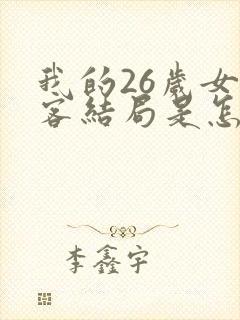 我的26岁女
客结局是怎
李鑫宇